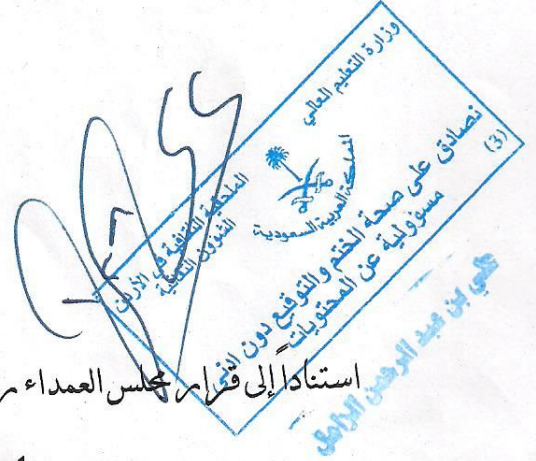 وزارة التعليم العالي
المملكة العربية السعودية
الملحقية الثقافية في الأردن
الشؤون الثقافية
نصادق على صحة الختم والتوقيع دون أدنى
مسؤولية عن المحتويات
(3)
علي بن عبد الرحمن
استناداً إلى قرار مجلس العمداء